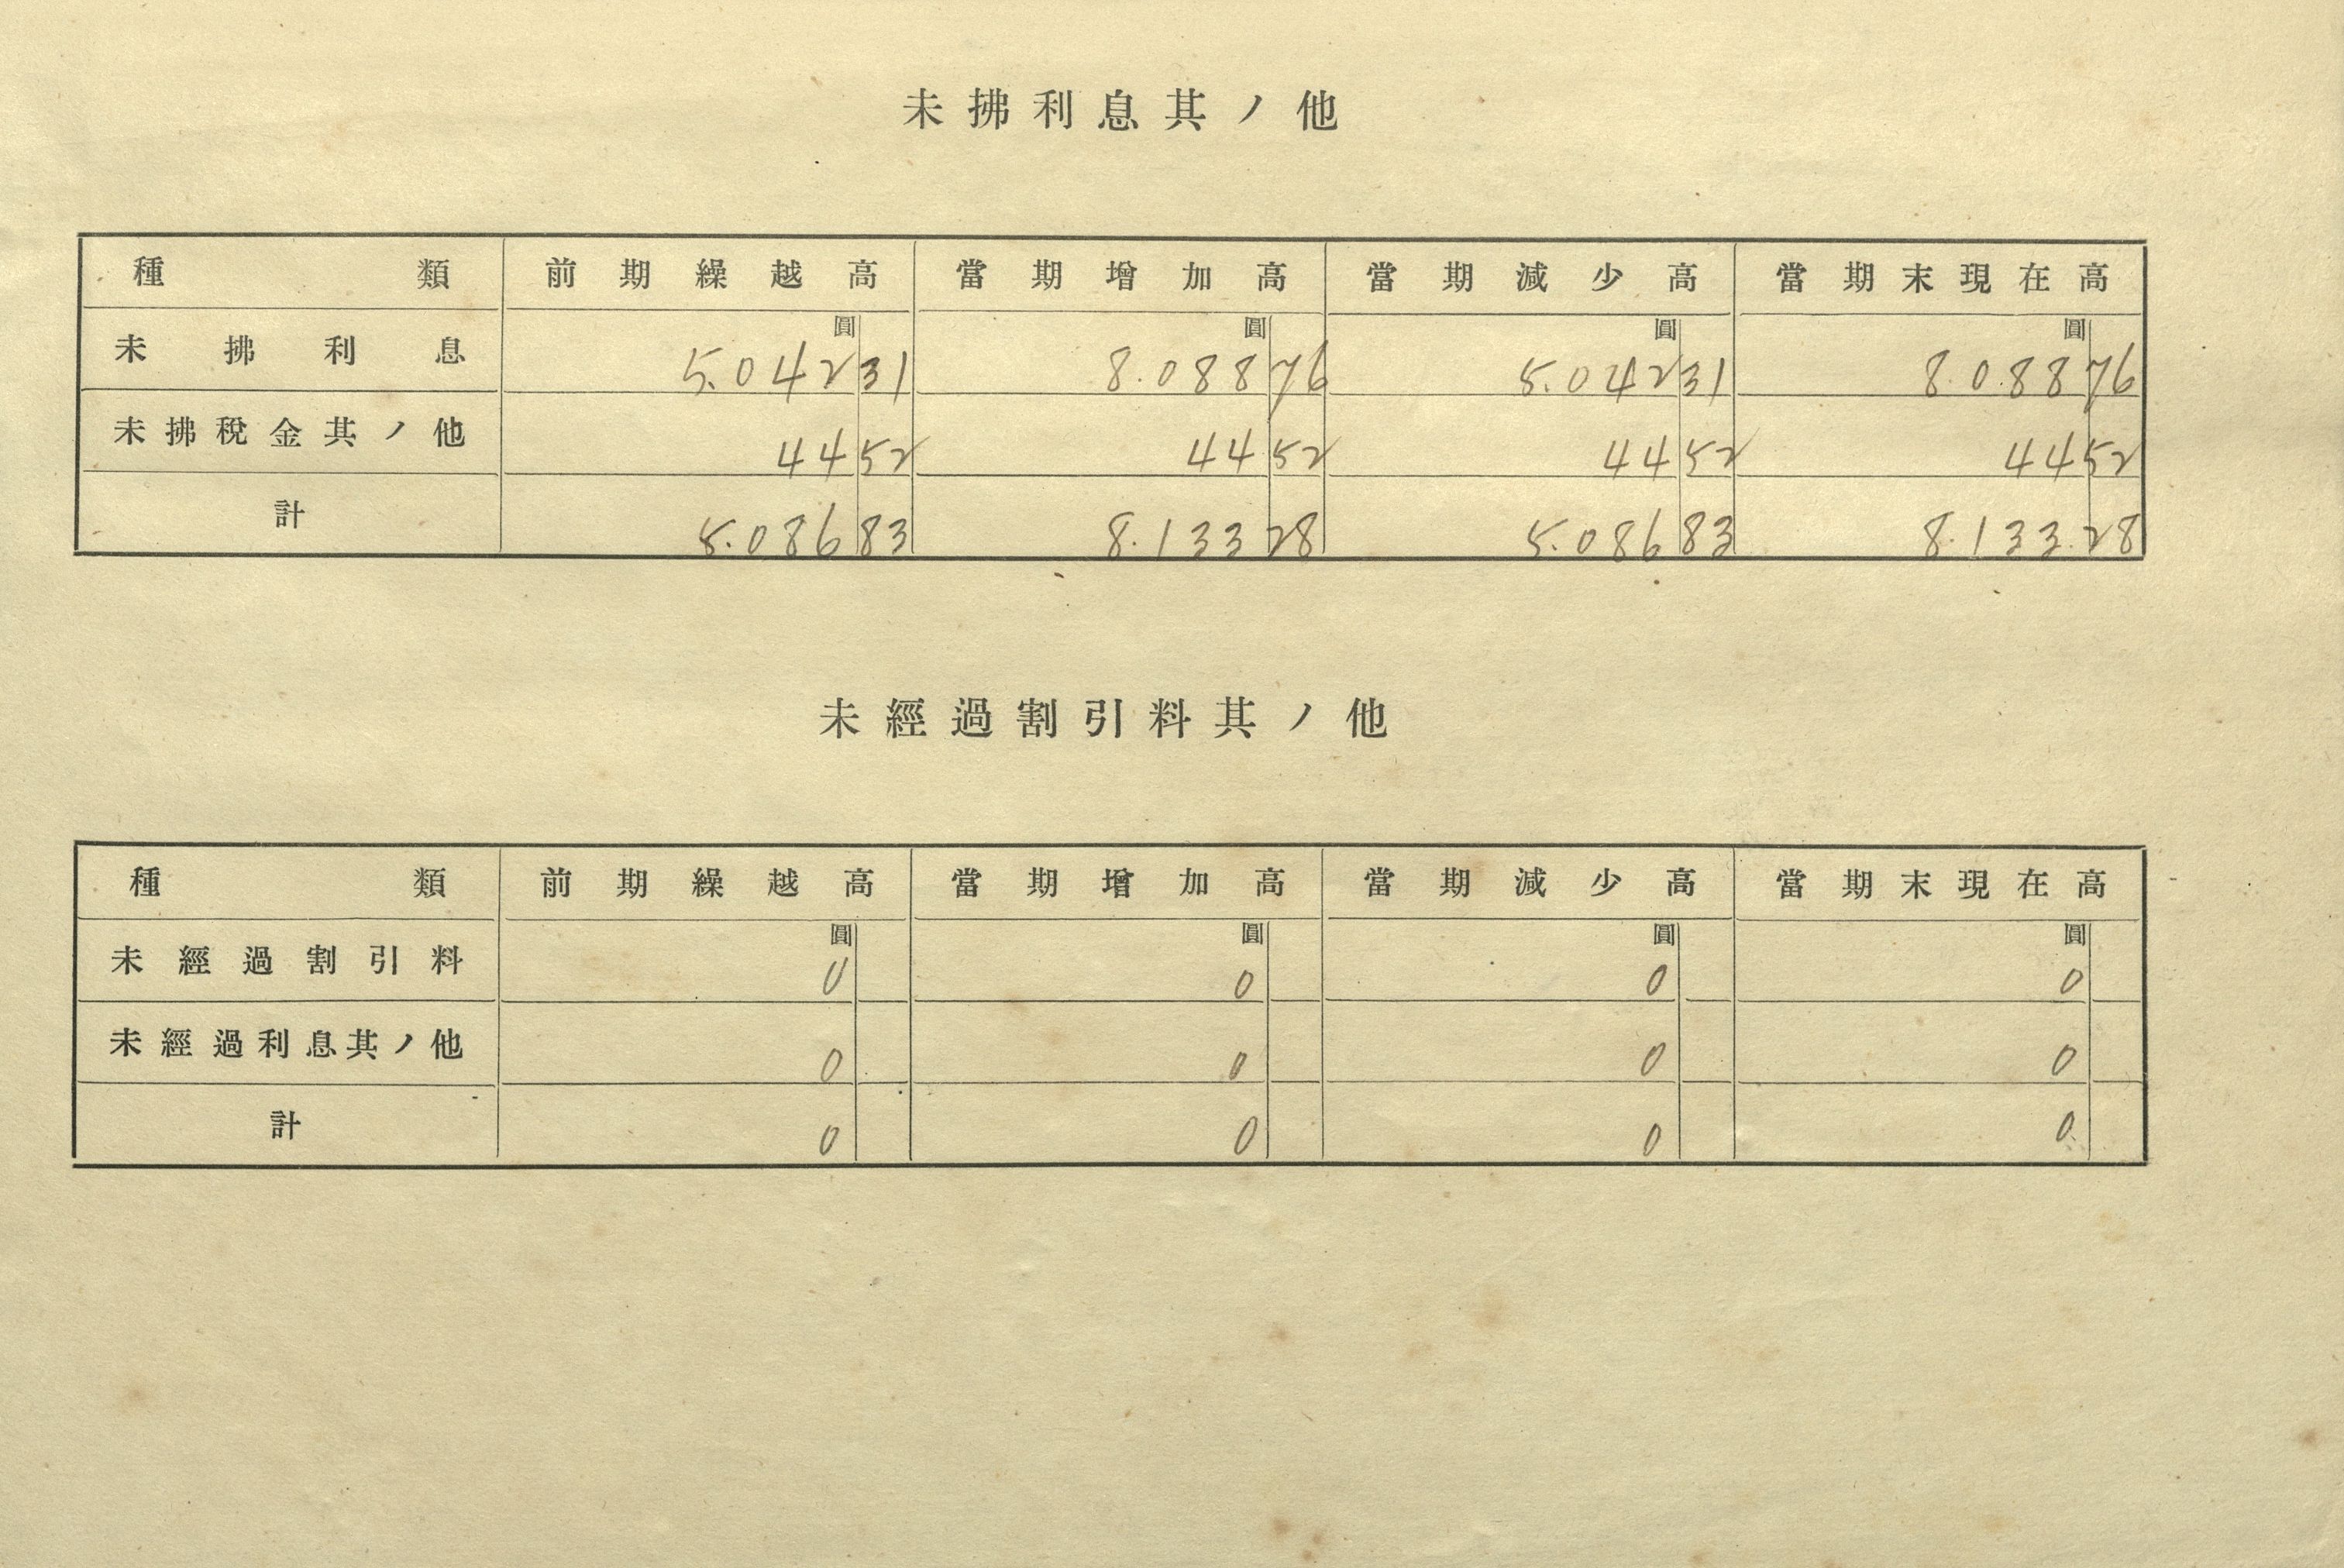 未拂利息其ノ他
種類 前期繰越高 當期增加高 當期減少高 當期末現在高
圓 圓 圓 圓
未拂利息 5.042 31 8.088 76 5.042 31 8.088 76
未拂稅金其ノ他 44 52 44 52 44 52 44 52
計 5.086 83 8.133 28 5.086 83 8.133.28
未經過割引料其ノ他
種類 前期繰越高 當期增加高 當期減少高 當期末現在高
圓 圓 圓 圓
未經過割引料 0 0 0 0
未經過利息其ノ他 0 0 0 0
計 0 0 0 0